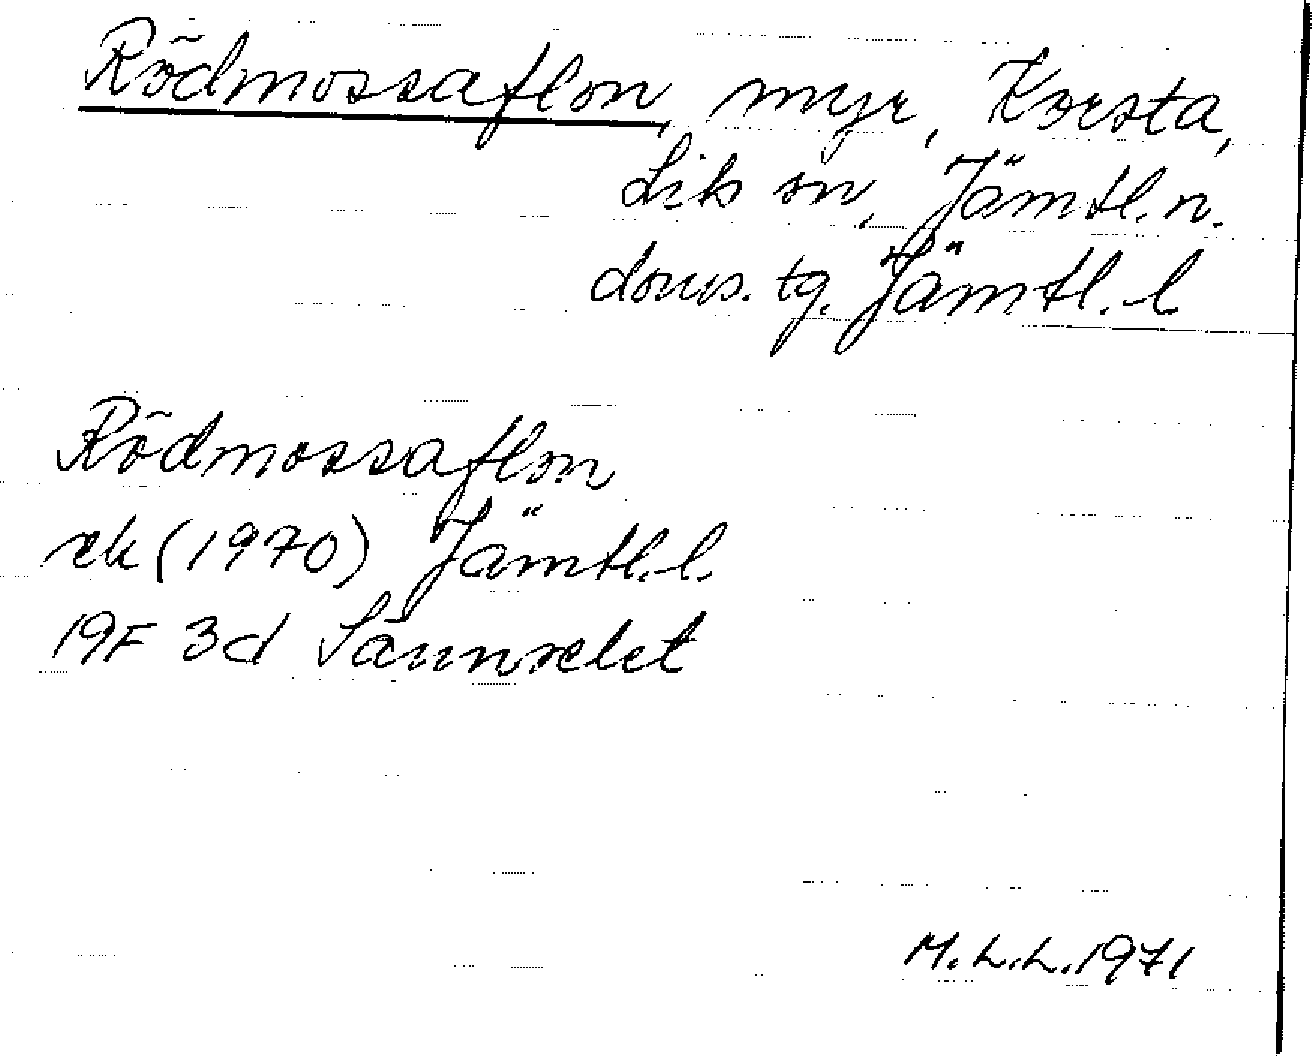 Rödmossaflon, myr, Korsta,
Lits sn, Jämtl. n.
doms. tg. Jämtl. l
Rödmossaflon
ek (1970) Jämtl. l.
19F 3d Sännselet
M. L. L. 1971